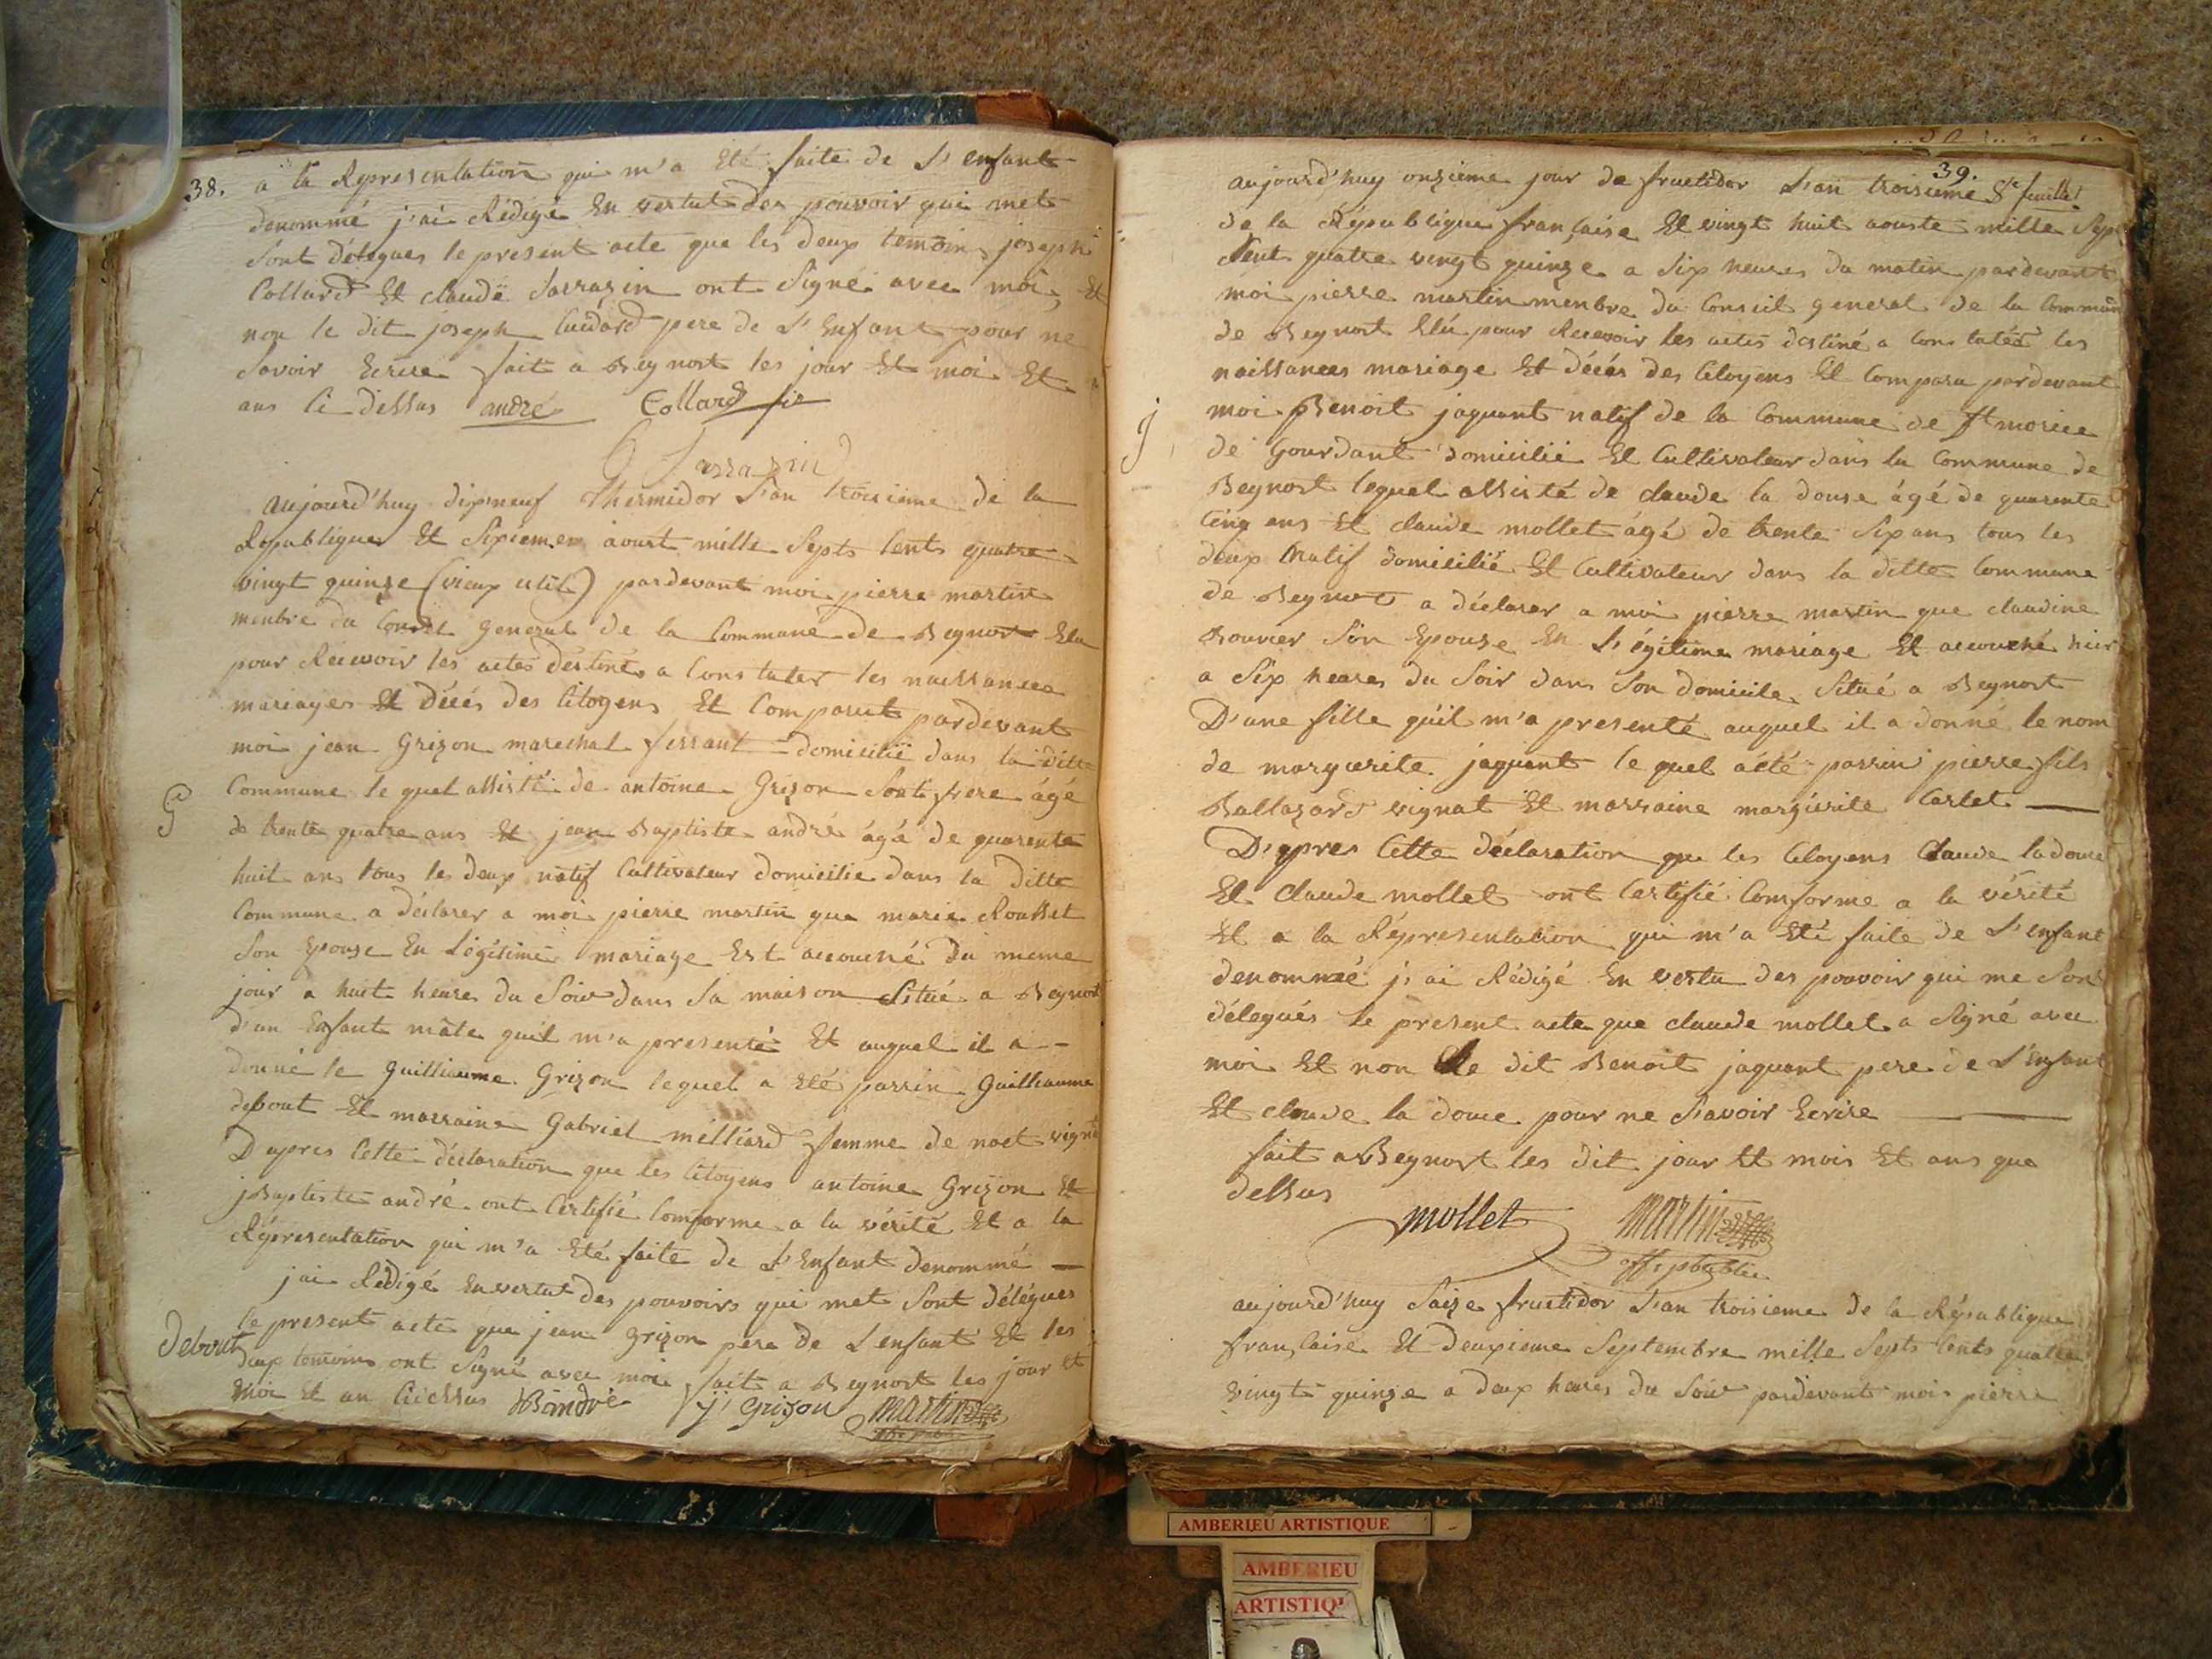 38.
a la Représentation qui m'a Eté faite de L'enfant
denommé j'ai Rédigé En vertut des pouvoir qui met
Sont Délegues le present acte que les deux temoin joseph
Collard Et claude Sarrazin ont Signé avec moi, Et
non le dit joseph Cuidard pere de L'Enfant pour ne
Savoir Ecrire fait a Beynost les jour Et moi Et
ans Ci-dessus andré Collard fis
C Sarrazin
aujourd'huy dixneuf Thermidor L'an troisième de la
Republique Et Sixieme aoust mille Septs Cents quatre
vingt quinze (vieux stil) pardevant moi pierre martin
menbre du Conseil general de la Commune de Beynost Elu
pour Recevoir les actes destinés a Constater les naissances
mariages Et Décés des Citoyens Et Comparut pardevant
moi jean Grizon marechal ferrant domicilié dans la ditte
G
Commune le quel assisté de antoine Grizon Sont frere âgé
de trente quatre ans Et jean Baptiste andré âgé de quarente
huit ans tous les deux natif Cultivateur domicilie dans la Ditte
Commune a déclarer a moi pierre martin que marie Rousset
Son Epouse En Légitime mariage Est accouché du meme
jour a huit heures du Soir dans Sa maison Situé a Beynost
d'un Enfant mâle quil m'a presenté Et auquel il a
donné le Guilliaume Grizon lequel a Eté parrin Guilliaume
debout Et marraine Gabriel milliard femme de noet vignat
D'apres Cette déclaration que les Citoyens antoine Grizon Et
jBaptiste andré ont Certifié Comforme a la vérité Et a la
Réprésentation qui m'a Eté faite de L'Enfant denommé
jai Rédigé En vertut des pouvoirs qui met Sont délégues
le present acte que jean grizon pere de L'enfant Et les
Debout
deux temoins ont Signé avec moi fait a Beynost les jour Et
moi Et an Cidessus JBandré j. Grizon martin
39.
8.e feuillet
aujourd'huy onzieme jour de fructidor L'an troisieme
de la République française Et vingt huit aouste mille Sept
Cent quatre vingt quinze a Six heures du matin pardevant
moi pierre martin menbre du Conseil general de la Commune
de Beynost Elu pour Recevoir les actes destiné a Constatés les
naissances mariage Et Décés des Citoyens Et Compara pardevant
j
moi Benoit jaquant natif de la Commune de St morice
de Gourdant domicilié Et Cultivateur dans la Commune de
Beynost lequel assisté de claude la douse âgé de quarente
Cinq ans Et claude mollet âgé de trente Six ans tous les
deux Natif domicilié Et Cultivateur dans la ditte Commune
de Beynost a déclarer a moi pierre martin que claudine
Bouvier Son Epouse En L'égitime mariage Et accouché hier
a Six heures du Soir dans Son Domicile Situé a Beynost
D'une fille qu'il m'a presenté auquel il a donné le nom
de marguerite jaquant le quel a été parrin pierre fils
Baltazard vignat Et marraine margurite Carlet
D'apres Cette déclaration que les Citoyens Claude ladouce
Et Claude mollet ont Certifié Comforme a la vérité
Et a la Répresentation qui m'a Eté faite de L'enfant
denommée j'ai Rédigé En vertu des pouvoir qui me Sont
délegués le present acte que claude mollet a Signé avec
moi Et non Le dit Benoit jaquant pere de L'Enfant
Et claude la douce pour ne Savoir Ecrire
fait a Beynost les dit jour Et mois Et ans que
dessus
mollet martin
off. publie
aujourd'huy Saize fructidor L'an troisieme de la République
française Et Deuxieme Septembre mille Septs Cents quatre
vingt quinze a deux heures du Soir pardevant moi pierre
AMBERIEU ARTISTIQUE
AMBERIEU
ARTISTIQ